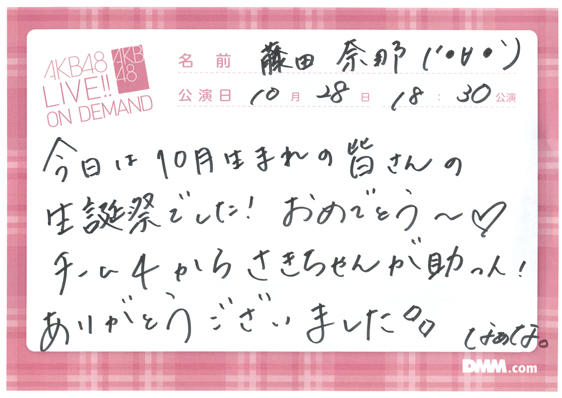 AKB48
LIVE!!
ON DEMAND
AKB
48
名前 藤田 奈那 ('•∀•`)
公演日 10月 28日 18:30公演
今日は10月生まれの皆さんの
生誕祭でした! おめでとう〜♡
チーム4からさきちゃんが助っ人!
ありがとうございました。
DMM.com